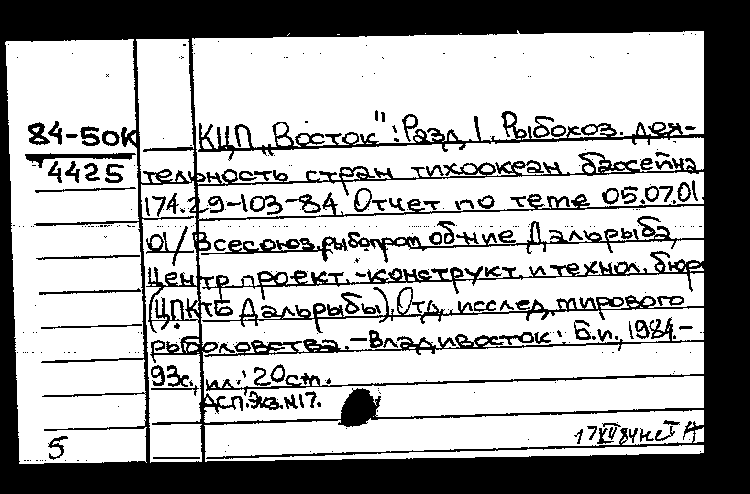 84-50К
4425
КЦП „Восток": Разд. 1. Рыбохоз. дея-
тельность стран тихоокеан. бассейна
174.29-103-84. Отчет по теме 05.07.01.
01/Всесоюз. рыбопром. об-ние Дальрыба,
Центр. проект.-конструкт. и технол. бюро
(ЦПКТБ Дальрыбы), Отд. исслед. мирового
рыболовства.-Владивосток: Б.и., 1984.-
93с., ил.; 20см.
ДСП. Экз. N17.
5
17 XII 84